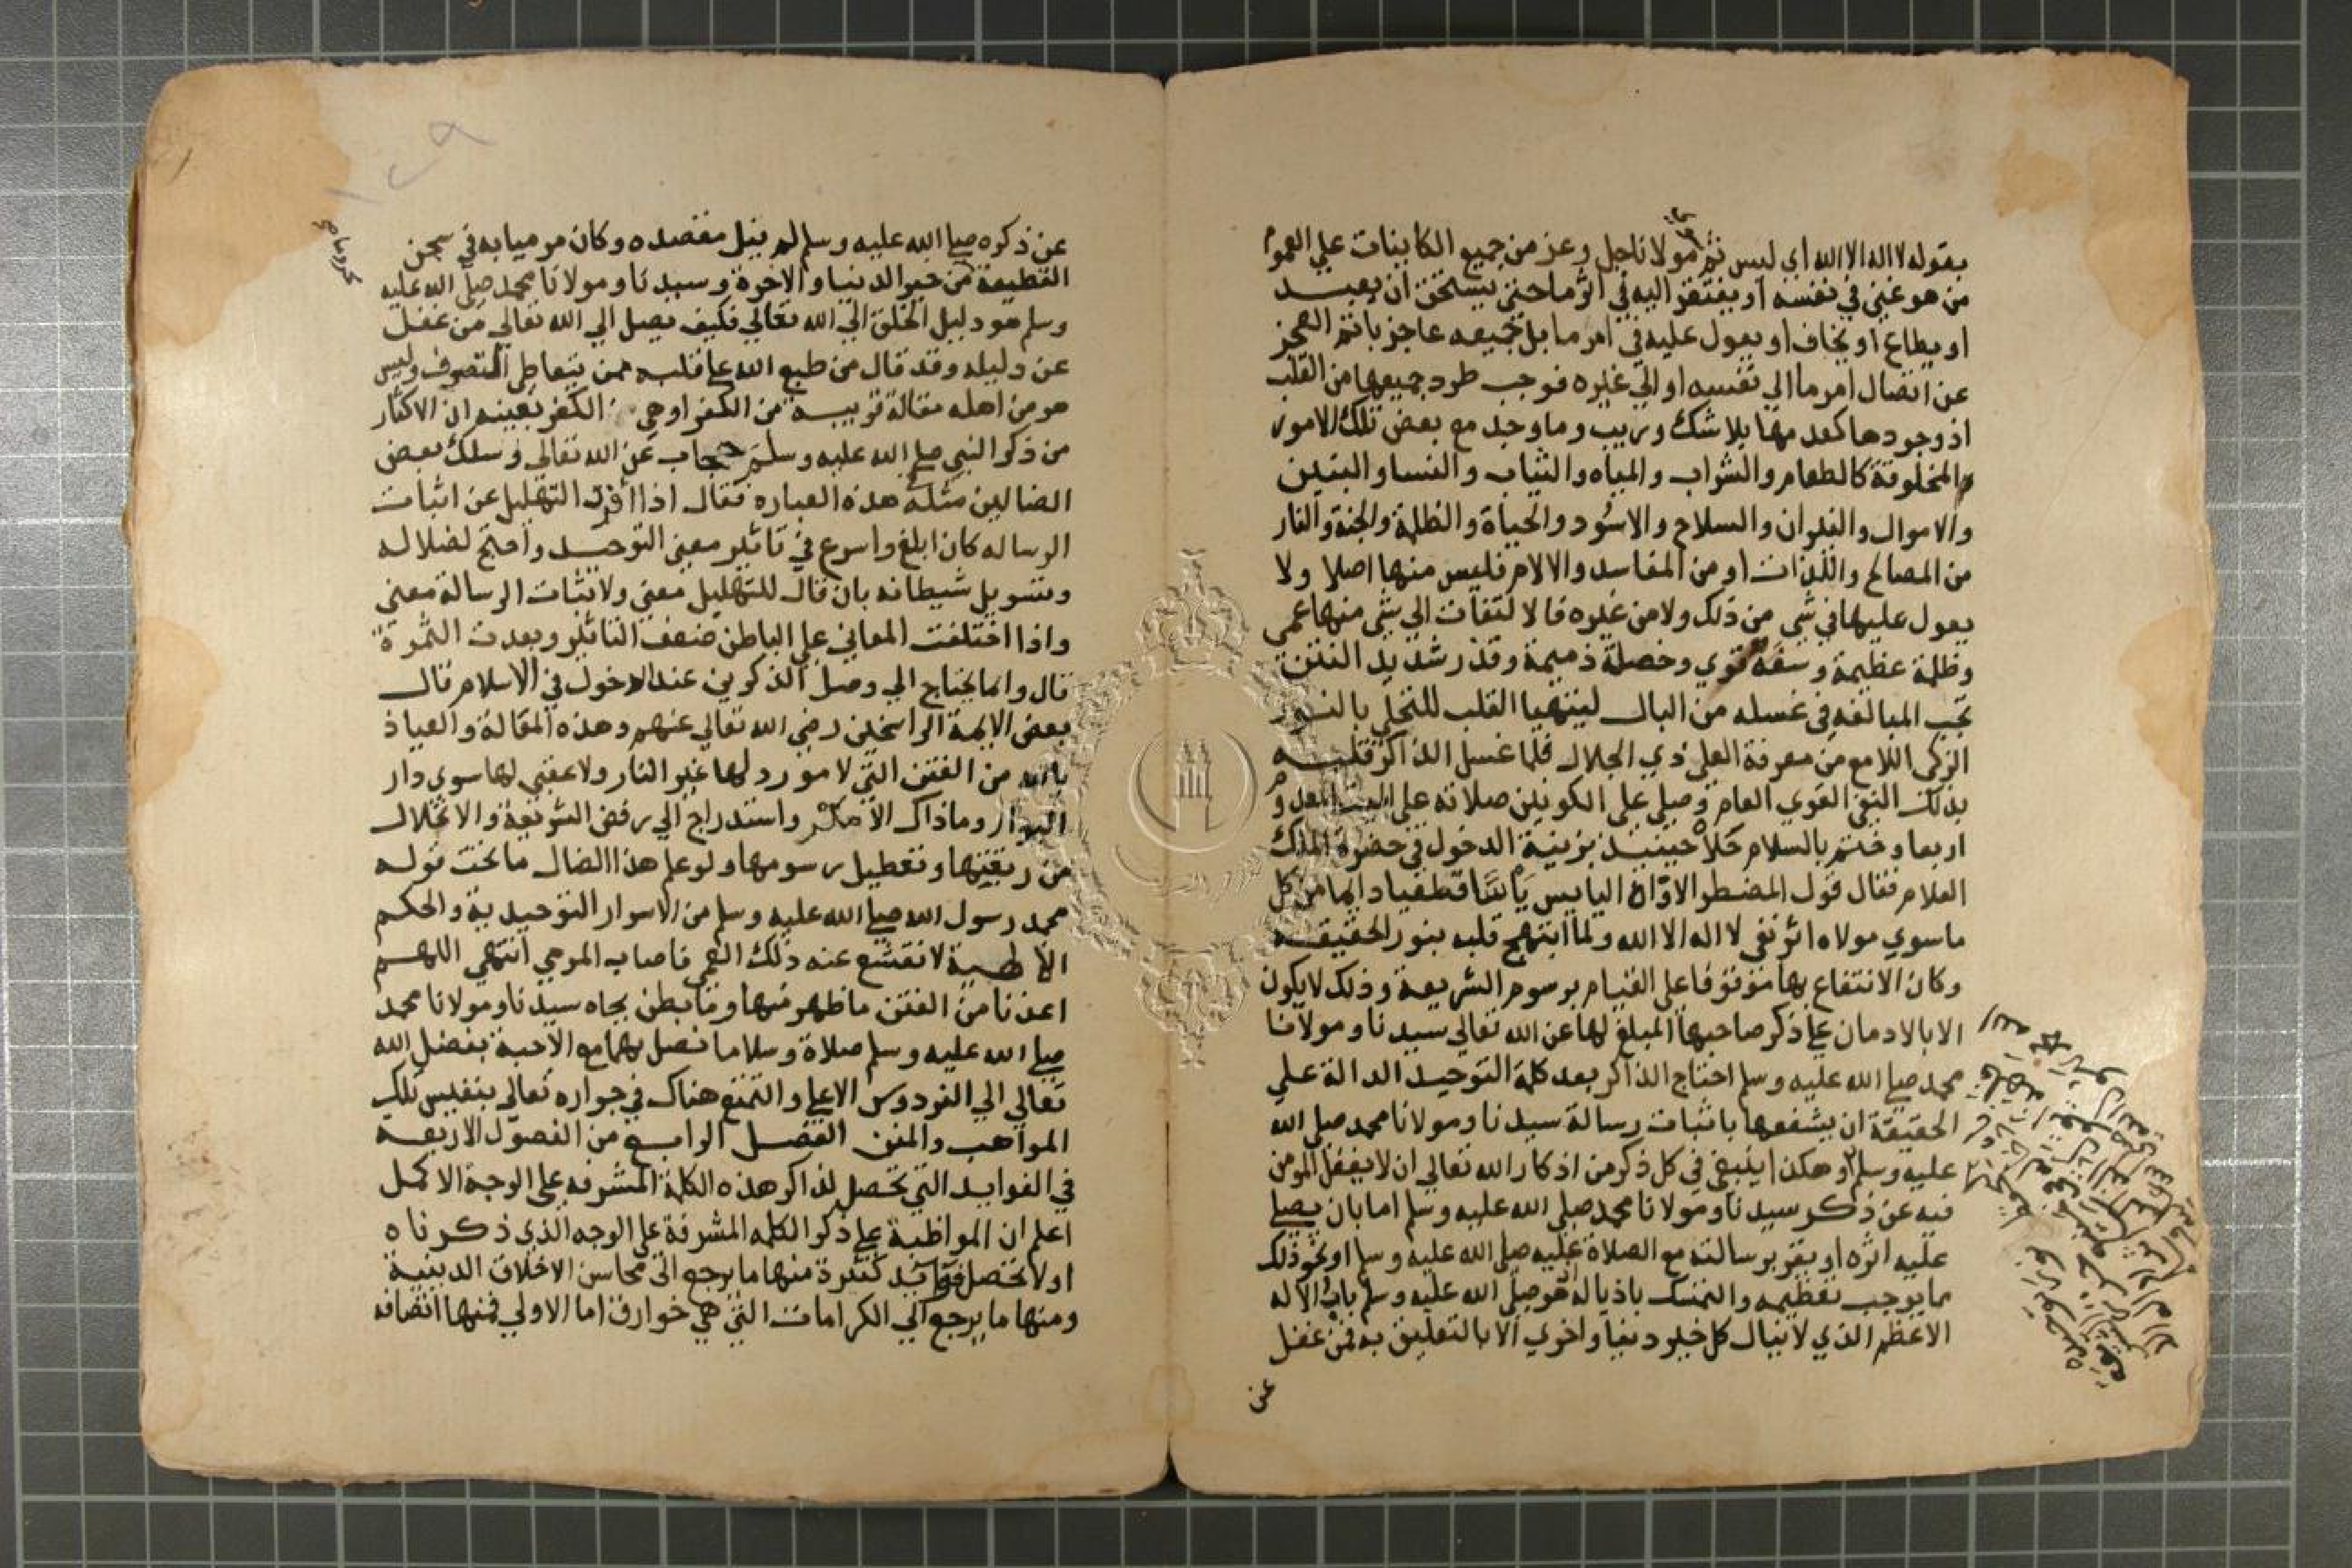 بقوله لا اله الا الله اي ليس ثم مولانا جل وعز من جميع الكاينات علي العموم
من هو غني في نفسه او يفتقر اليه في اثر ما حتي يستحق ان يعبد
او يطاع او يخاف او يعول عليه في امر ما بل جميعه عاجز باتم العجز
عن اتصال امر ما الي نفسه او الي غيره فوجب طرد جميعها من القلب
اذ وجودها كعدمها بلا شك وريب وما وجد مع بعض تلك الامور
المخلوقة كالطعام والشراب والمياه والثياب والنسا والبنين
والاموال والنيران والسلاح والاسود والحياة والظلمة والجنة والنار
من المصالح واللذات او من المفاسد والالام فليس منها اصلا ولا
يعول عليها في شي من ذلك ولا من غيره فالالتفات الي شي منها عمي
وظلمة عظيمة وسفه قوي وخصلة ذميمة وقذر شديد النتن
تجب المبالغه في غسله من البال ليتهيا القلب للتحلي بالنور
الزكي اللامع من معرفة العلي ذي الجلال فلما غسل الذاكر قلبه
بذلك النفي القوي العام وصلي علي الكونين صلاته علي الميت المعدوم
اربعا وختم بالسلام حلا حينيذ بزينة الدخول في حضرة الملك
العلام فقال قول المضطر الاواه اليايس ياسا قطعيا دايما من كل
ما سوي مولاه اثر نفي لا اله الا الله ولما ابتهج قلبه بنور الحقيقه
وكان الانتفاع بها موقوفا علي القيام برسوم الشريعة وذلك لا يكون
الا بالادمان علي ذكر صاحبها المبلغ لها عن الله تعالي سيدنا ومولانا
محمد صلي الله عليه وسلم احتاج الذاكر بعد كلمة التوحيد الدالة علي
الحقيقة ان يشفعها باثبات رسالة سيدنا ومولانا محمد صلي الله
عليه وسلم وهكذا ينبغي في كل ذكر من اذكار الله تعالي ان لا يغفل المومن
فيه عن ذكر سيدنا ومولانا محمد صلي الله عليه وسلم اما بان يصلي
عليه اثره او يقر برسالته مع الصلاة عليه صلي الله عليه وسلم او نحو ذلك
مما يوجب تعظيمه والتمسك باذياله اذ هو صلي الله عليه وسلم باب الاله
الاعظم الذي لا ينال كل خير دنيا واخري الا بالتعليق به فمن غفل
عن
عن ذكره صلي الله عليه وسلم لم ينل مقصده وكان مرميا به في سجن
القطيعة من خير الدنيا والاخرة وسيدنا ومولانا محمد صلي الله عليه
وسلم هو دليل الخلق الي الله تعالي فكيف يصل الي الله تعالي من غفل
عن دليله وقد قال من طبع الله علي قلبه ممن يتعاطي التصوف وليس
هو من اهله مقالة قريبة من الكفر او هي الكفر بعينه ان الاكثار
من ذكر النبي صلي الله عليه وسلم حجاب عن الله تعالي وسلك بعض
الضالين مثله هذه العباره فقال اذا افرد التهليل عن اثبات
الرساله كان ابلغ واسرع في تاثير معني التوحيد واحتج لضلاله
وتسويل شيطانه بان قال للتهليل معني ولاثبات الرسالة معني
واذا اختلفت المعاني علي الباطن ضعف التاثير وبعدت الثمرة
قال وانما يحتاج الي وصل الذكرين عند الدخول في الاسلام قال
بعض الايمة الراسخين رضي الله تعالي عنهم وهذه المقالة والعياذ
بالله من الفتن التي لا مورد لها غير النار ولا عقبي لها سوي دار
البوار وما ذاك الا مكر واستدراج الي رفض الشريعة والانحلال
من ربقتها وتعطيل رسومها ولو علم هذا الضال ما تحت قوله
محمد رسول الله صلي الله عليه وسلم من الاسرار التوحيدية والحكم
الالهية لانقشع عنه ذلك العمي فاصاب المرمي انتهي اللهم
اعذنا من الفتن ما ظهر منها وما بطن بجاه سيدنا ومولانا محمد
صلي الله عليه وسلم صلاة وسلاما نصل بهما مع الاحبة بفضل الله
تعالي الي الفردوس الاعلي والتمتع هناك في جواره تعالي بنفيس تلك
المواهب والمنن الفصل الرابع من الفصول الاربعة
في الفوايد التي تحصل لذاكر هذه الكلمة المشرفه علي الوجه الاكمل
اعلم ان المواظبة علي ذكر الكلمه المشرفة علي الوجه الذي ذكرناه
اولا تحصل فوايد كثيرة منها ما يرجع الي محاسن الاخلاق الدينية
ومنها ما يرجع الي الكرامات التي هي خوارق اما الاولي فمنها اتصافه